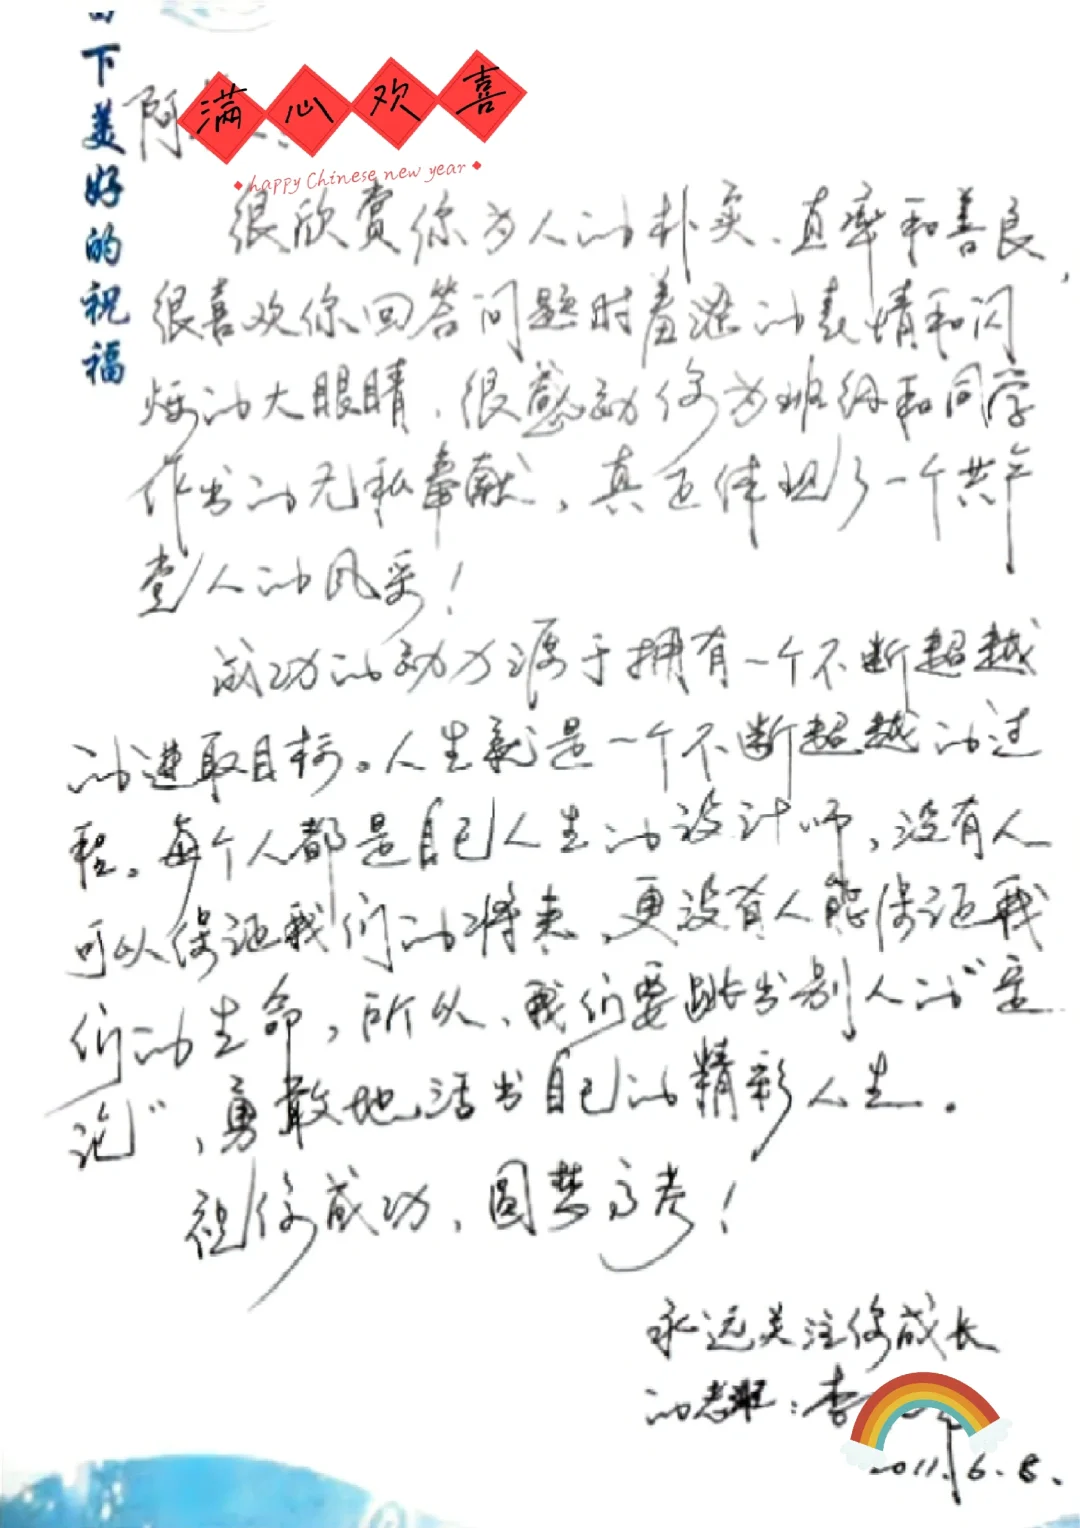 下美好的祝福
满心欢喜
happy Chinese new year
阿
很欣赏你为人的朴实、直率和善良，
很喜欢你回答问题时羞涩的表情和闪
烁的大眼睛，很感动你为班级和同学
作出的无私奉献，真正体现了一个共产
党人的风采！
成功的动力源于拥有一个不断超越
的进取目标。人生就是一个不断超越的过
程。每个人都是自己人生的设计师，没有人
可以保证我们的将来，更没有人能保证我
们的生命，所以，我们要跳出别人的“定
论”，勇敢地活出自己的精彩人生。
祝你成功，圆梦高考！
永远关注你成长
的老班：李
2011.6.8.